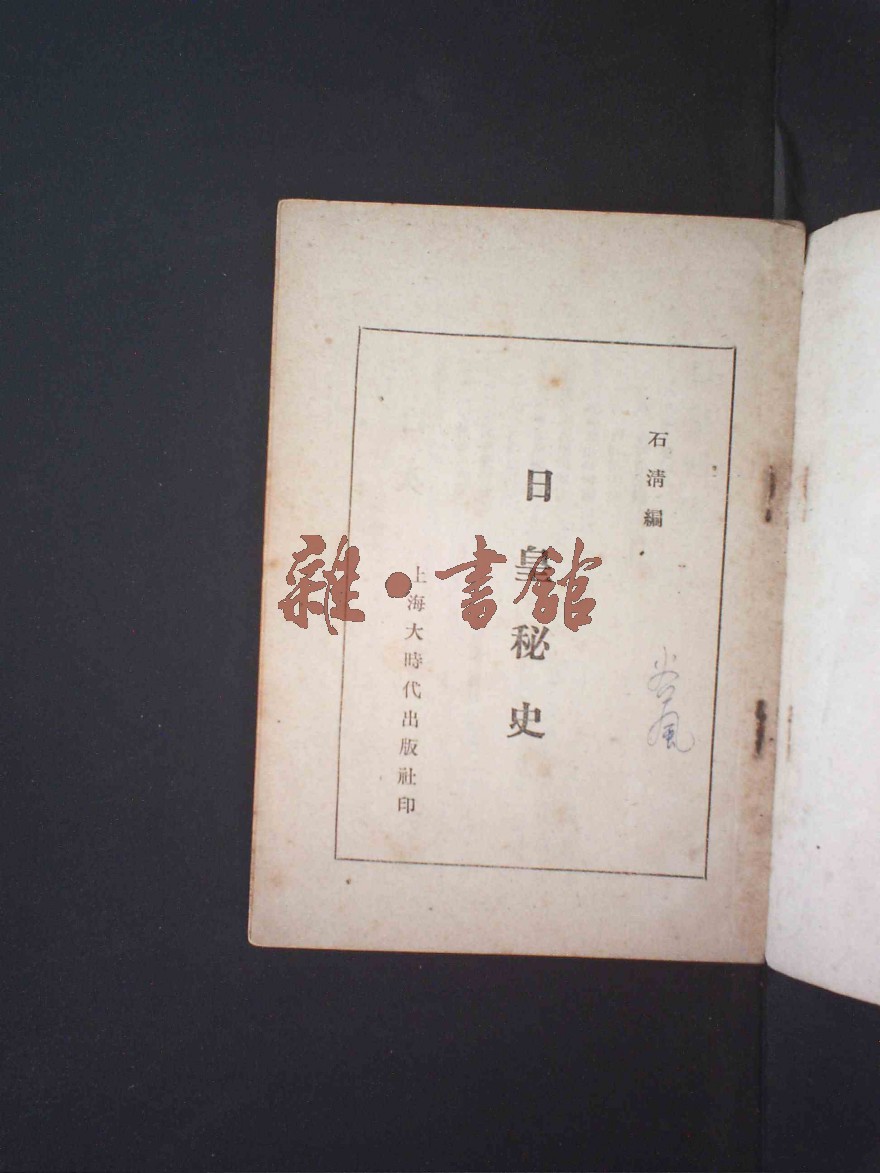 石清編
日皇秘史
上海大時代出版社印
雜·書館